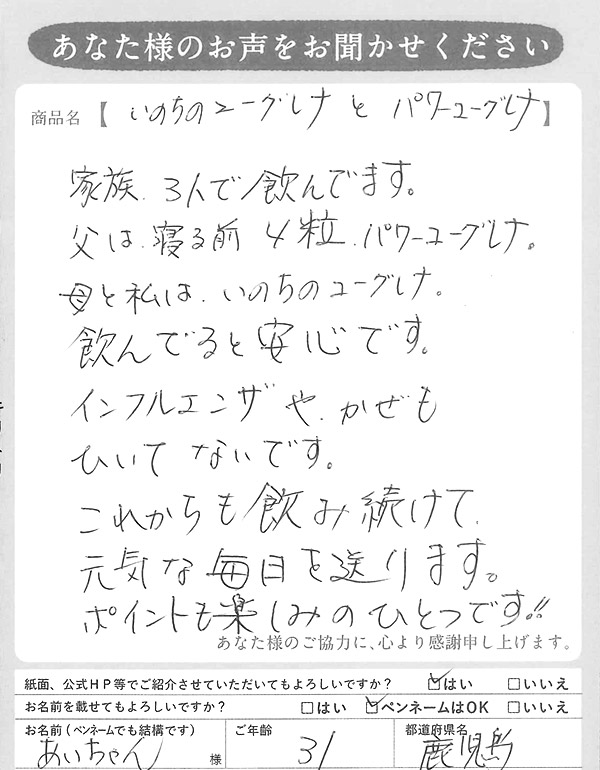 あなた様のお声をお聞かせください
商品名【 いのちのユーグレナ と パワーユーグレナ】
家族、3人で飲んでます。
父は、寝る前 4粒、パワーユーグレナ。
母と私は、いのちのユーグレナ。
飲んでると安心です。
インフルエンザや、かぜも
ひいて ないです。
これからも飲み続けて、
元気な毎日を送ります。
ポイントも楽しみのひとつです!!
あなた様のご協力に、心より感謝申し上げます。
紙面、公式HP等でご紹介させていただいてもよろしいですか? ☑はい □いいえ
お名前を載せてもよろしいですか? □はい ☑ペンネームはOK □いいえ
お名前(ペンネームでも結構です) ご年齢 都道府県名
あいちゃん 様 31 鹿児島